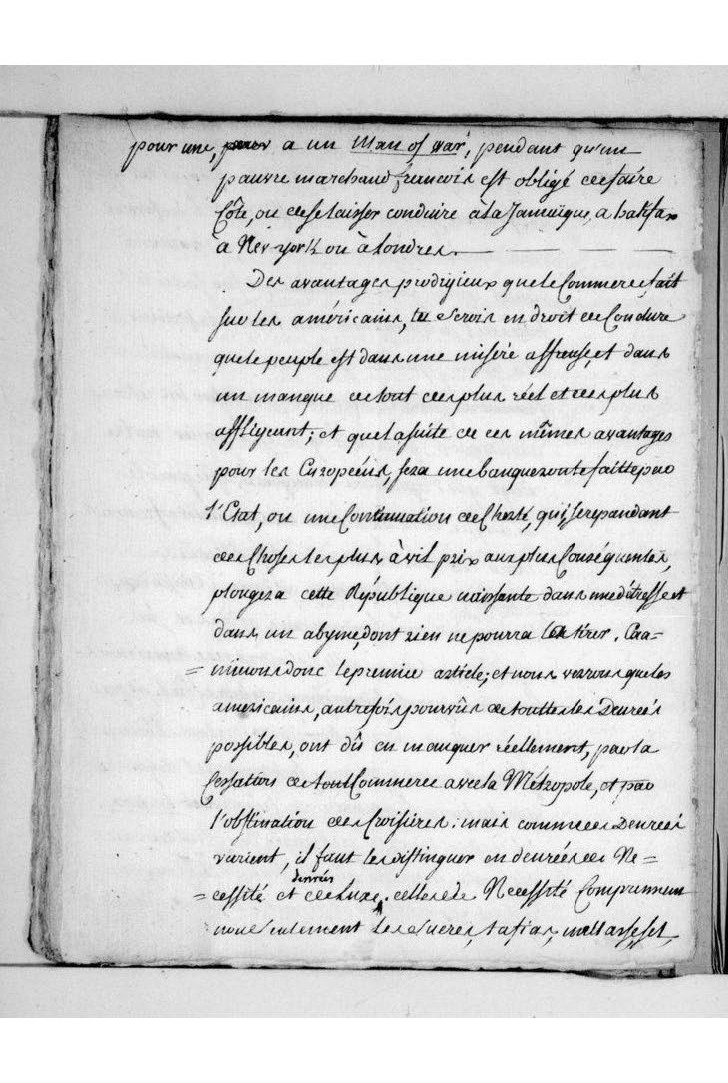 pour une, a un Man of war, pendant qu'un
pauvre marchand francois est obligé de faire
Côte, ou de se laisser conduire à la Jamaïque, a halifax
à New-york ou à Londres.
Des avantages prodigieux que le Commerce fait
sur les américains, tu serois en droit de Conclure
que le peuple est dans une misére affreuse, et dans
un manque de tout des plus réel et des plus
affligeant; et que la suite de ces mêmes avantages
pour les Européens, sera une banqueroute faitte par
l'Etat, ou une Continuation de Cherté, qui, se repandant
des Choses les plus à vil prix aux plus Conséquentes,
plongera cette République naissante dans une détresse et
dans un abyme, dont rien ne pourra la tirer. Exa=
=minons donc le premier article; et nous verrons que les
americains, autrefois pourvûs de touttes les Denrées
possibles, ont dû en manquer réellement, par la
Cessation de tout Commerce avec la Métropole, et par
l'obstination des Croisieres: mais comme ces Denrées
varient, il faut les distinguer en denrées de Né=
=cessité et denrées de Luxe. celles de Nécessité Comprennent
non seulement les sucres, tafias, mellasse, sel,